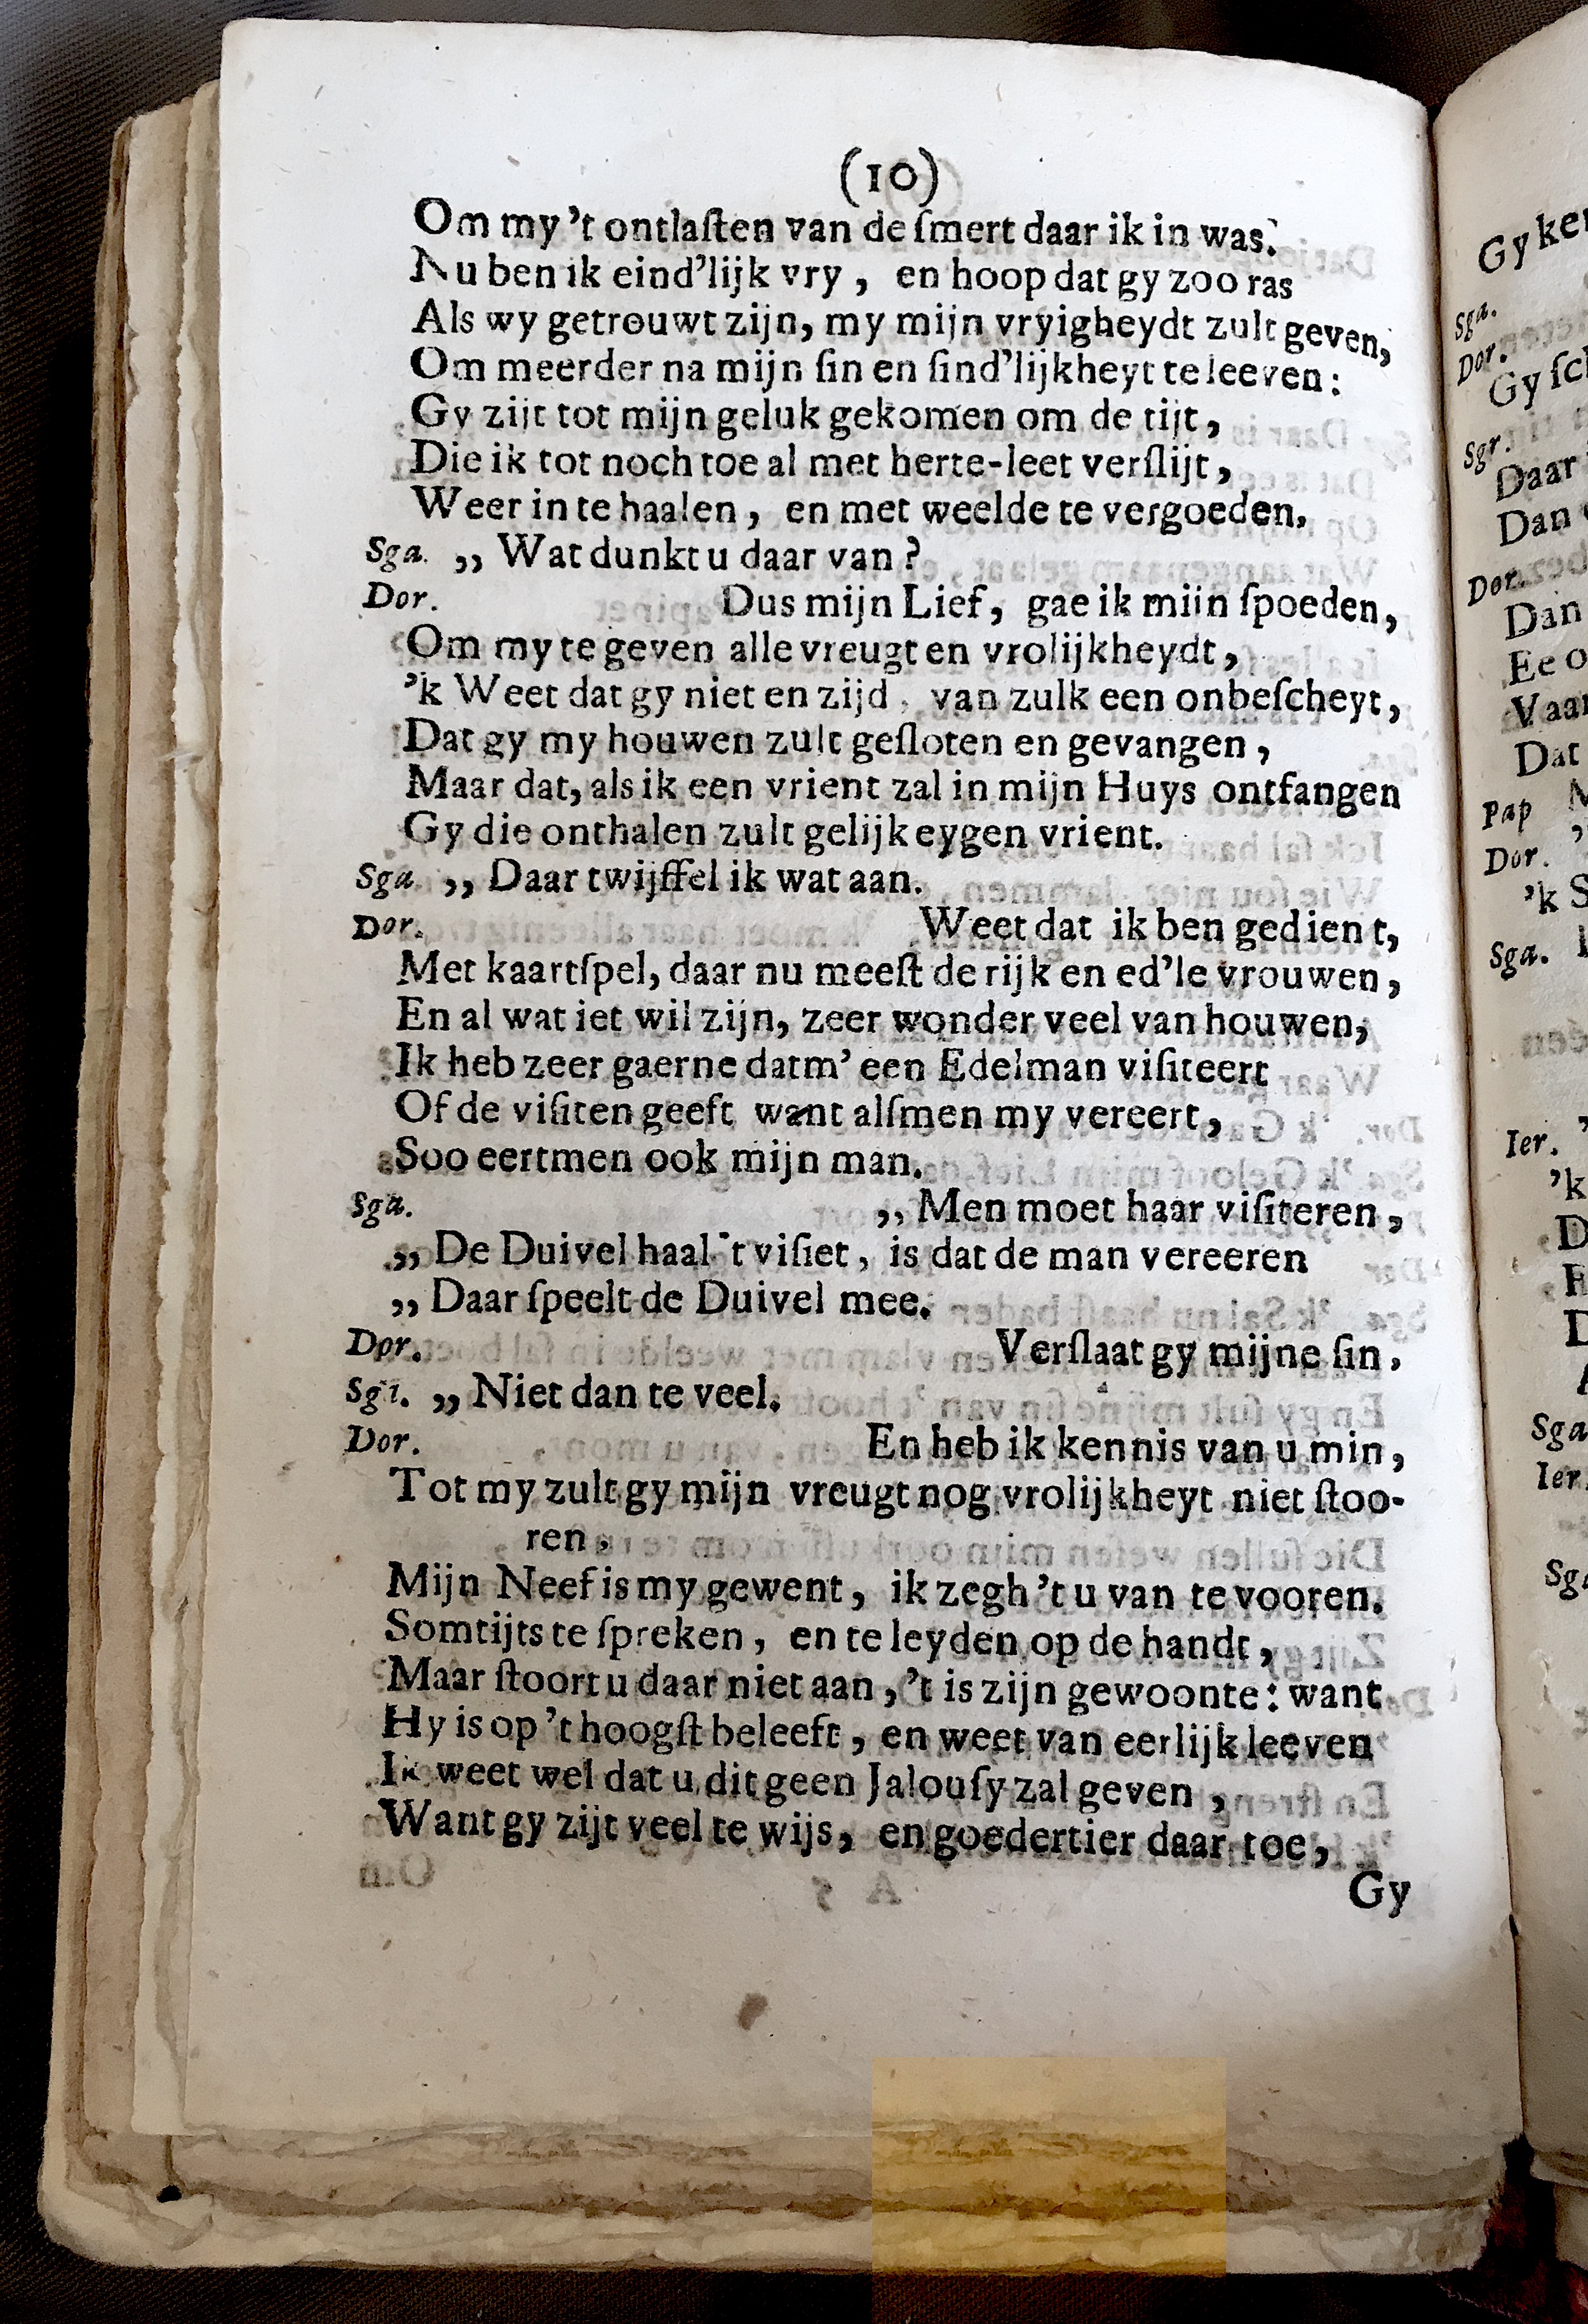 (10)
Om my 't ontlaſten van de ſmert daar ik in was.
Nu ben ik eind'lijk vry, en hoop dat gy zoo ras
Als wy getrouwt zijn, my mijn vryigheydt zult geven,
Om meerder na mijn ſin en ſind'lijkheyt te leeven:
Gy zijt tot mijn geluk gekomen om de tijt,
Die ik tot noch toe al met herte-leet verſlijt,
Weer in te haalen, en met weelde te vergoeden.
Sga. ,, Wat dunkt u daar van?
Dor. Dus mijn Lief, gae ik mijn ſpoeden,
Om my te geven alle vreugt en vrolijkheydt,
'k Weet dat gy niet en zijd, van zulk een onbeſcheyt,
Dat gy my houwen zult geſloten en gevangen,
Maar dat, als ik een vrient zal in mijn Huys ontfangen
Gy die onthalen zult gelijk eygen vrient.
Sga ,, Daar twijffel ik wat aan.
Dor. Weet dat ik ben gedient,
Met kaartſpel, daar nu meeſt de rijk en ed'le vrouwen,
En al wat iet wil zijn, zeer wonder veel van houwen,
Ik heb zeer gaerne datm' een Edelman viſiteert
Of de viſiten geeft want alſmen my vereert,
Soo eertmen ook mijn man.
Sga. ,, Men moet haar viſiteren,
,, De Duivel haal 't viſiet, is dat de man vereeren
,, Daar ſpeelt de Duivel mee.
Dor. Verſlaat gy mijne ſin.
Sga. ,, Niet dan te veel.
Dor. En heb ik kennis van u min,
Tot my zult gy mijn vreugt nog vrolijkheyt niet ſtoo-
ren,
Mijn Neef is my gewent, ik zegh 't u van te vooren.
Somtijts te ſpreken, en te leyden op de handt,
Maar ſtoort u daar niet aan, 't is zijn gewoonte: want
Hy is op 't hoogſt beleeft, en weet van eerlijk leeven
Ik weet wel dat u dit geen Jalouſy zal geven,
Want gy zijt veel te wijs, en goedertier daar toe,
Gy
Gy
Sga.
Dor.
Gy
Sgr.
Daar
Dan
Dor.
Dan
Ee
Vaar
Dat
Pap
Dor.
'k S
Sga.
Ier.
'k
D
Sga
Ier.
Sga